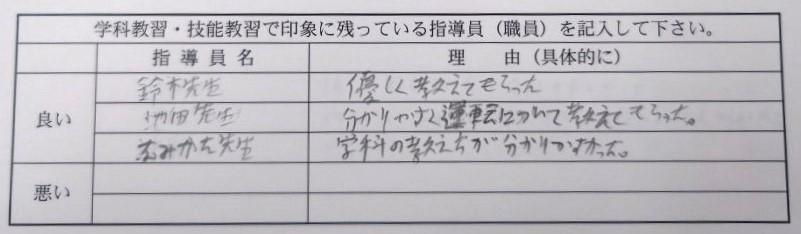 学科教習・技能教習で印象に残っている指導員（職員）を記入して下さい。
指導員名 理由（具体的に）
良い
鈴木先生 優しく教えてもらった
池田先生 分かりやすく運転について教えてもらった。
先生 学科の教え方が分かりやすかった。
悪い